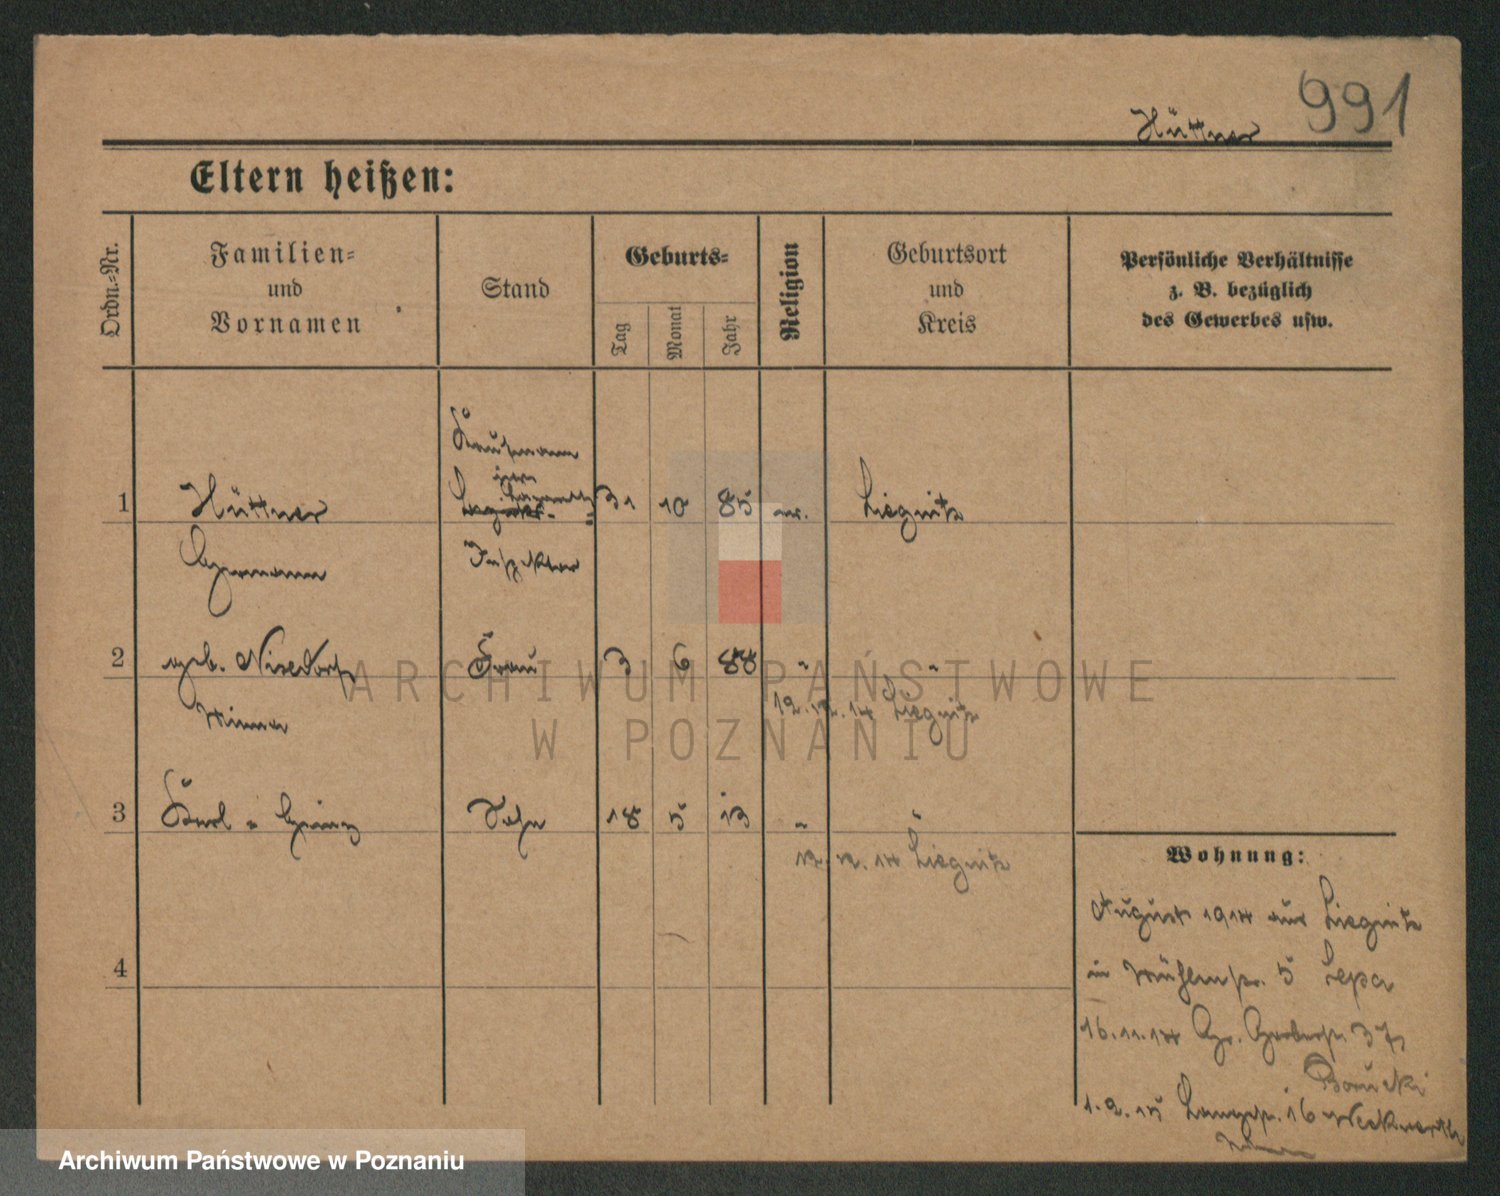 991
Hüttner
Eltern heißen:
Ordn.-Nr.
Familien-
und
Vornamen
Stand
Geburts-
Tag
Monat
Jahr
Religion
Geburtsort
und
Kreis
Persönliche Verhältnisse
z. B. bezüglich
des Gewerbes usw.
Kaufmann
1 Hüttner 31 10 85 ev. Liegnitz
Hermann Inspektor
2 geb. Frau 3 6 88 " "
Minna 12.12.14 Liegnitz
3 Karl = Heinz Sohn 18 5 13 " "
12.12.14 Liegnitz
Wohnung:
August 1914 aus Liegnitz
in Mühlenstr. 5
4
16.11.14 Gr. Gerberstr. 37
1.2.15 Langestr. 16
ARCHIWUM PAŃSTWOWE
W POZNANIU
Archiwum Państwowe w Poznaniu